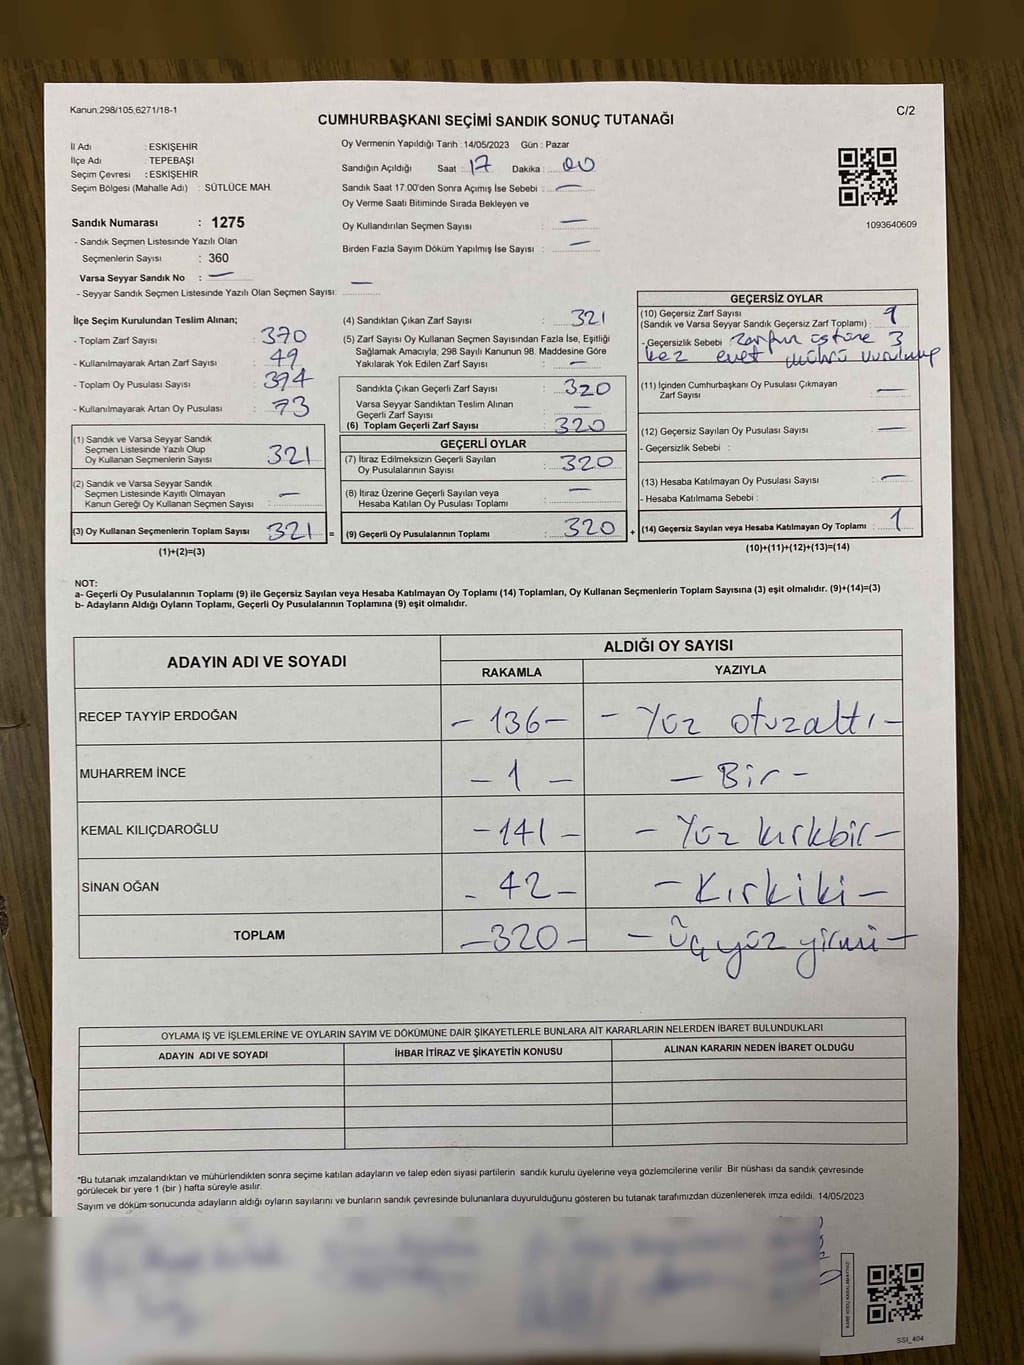 Kanun:298/105,6271/18-1
C/2
CUMHURBAŞKANI SEÇİMİ SANDIK SONUÇ TUTANAĞI
İl Adı : ESKİŞEHİR
İlçe Adı : TEPEBAŞI
Seçim Çevresi : ESKİŞEHİR
Seçim Bölgesi (Mahalle Adı) : SÜTLÜCE MAH.
Sandık Numarası : 1275
- Sandık Seçmen Listesinde Yazılı Olan
Seçmenlerin Sayısı : 360
Varsa Seyyar Sandık No : —
- Seyyar Sandık Seçmen Listesinde Yazılı Olan Seçmen Sayısı: —
Oy Vermenin Yapıldığı Tarih : 14/05/2023 Gün : Pazar
Sandığın Açıldığı Saat : 17 Dakika : 00
Sandık Saat 17:00'den Sonra Açımış İse Sebebi : —
Oy Verme Saati Bitiminde Sırada Bekleyen ve
Oy Kullandırılan Seçmen Sayısı : —
Birden Fazla Sayım Döküm Yapılmış İse Sayısı : —
1093640609
İlçe Seçim Kurulundan Teslim Alınan;
- Toplam Zarf Sayısı : 370
- Kullanılmayarak Artan Zarf Sayısı : 49
- Toplam Oy Pusulası Sayısı : 394
- Kullanılmayarak Artan Oy Pusulası : 73
(1) Sandık ve Varsa Seyyar Sandık
Seçmen Listesinde Yazılı Olup
Oy Kullanan Seçmenlerin Sayısı : 321
(2) Sandık ve Varsa Seyyar Sandık
Seçmen Listesinde Kayıtlı Olmayan
Kanun Gereği Oy Kullanan Seçmen Sayısı : —
(3) Oy Kullanan Seçmenlerin Toplam Sayısı : 321 =
(1)+(2)=(3)
(4) Sandıktan Çıkan Zarf Sayısı : 321
(5) Zarf Sayısı Oy Kullanan Seçmen Sayısından Fazla İse, Eşitliği
Sağlamak Amacıyla, 298 Sayılı Kanunun 98. Maddesine Göre
Yakılarak Yok Edilen Zarf Sayısı : —
Sandıkta Çıkan Geçerli Zarf Sayısı : 320
Varsa Seyyar Sandıktan Teslim Alınan
Geçerli Zarf Sayısı : —
(6) Toplam Geçerli Zarf Sayısı : 320
GEÇERLİ OYLAR
(7) İtiraz Edilmeksizin Geçerli Sayılan
Oy Pusulalarının Sayısı : 320
(8) İtiraz Üzerine Geçerli Sayılan veya
Hesaba Katılan Oy Pusulası Toplamı : —
(9) Geçerli Oy Pusulalarının Toplamı : 320 +
GEÇERSİZ OYLAR
(10) Geçersiz Zarf Sayısı
(Sandık ve Varsa Seyyar Sandık Geçersiz Zarf Toplamı) : 1
- Geçersizlik Sebebi : zarfın üstüne 3
kez evet mührü vurulup
(11) İçinden Cumhurbaşkanı Oy Pusulası Çıkmayan
Zarf Sayısı : —
(12) Geçersiz Sayılan Oy Pusulası Sayısı : —
- Geçersizlik Sebebi :
(13) Hesaba Katılmayan Oy Pusulası Sayısı : —
- Hesaba Katılmama Sebebi :
(14) Geçersiz Sayılan veya Hesaba Katılmayan Oy Toplamı : 1
(10)+(11)+(12)+(13)=(14)
NOT:
a- Geçerli Oy Pusulalarının Toplamı (9) ile Geçersiz Sayılan veya Hesaba Katılmayan Oy Toplamı (14) Toplamları, Oy Kullanan Seçmenlerin Toplam Sayısına (3) eşit olmalıdır. (9)+(14)=(3)
b- Adayların Aldığı Oyların Toplamı, Geçerli Oy Pusulalarının Toplamına (9) eşit olmalıdır.
ADAYIN ADI VE SOYADI
ALDIĞI OY SAYISI
RAKAMLA YAZIYLA
RECEP TAYYİP ERDOĞAN – 136 – – Yüz otuzaltı –
MUHARREM İNCE – 1 – – Bir –
KEMAL KILIÇDAROĞLU – 141 – – Yüz kırkbir –
SİNAN OĞAN – 42 – – Kırkiki –
TOPLAM – 320 – – Üçyüz yirmi –
OYLAMA İŞ VE İŞLEMLERİNE VE OYLARIN SAYIM VE DÖKÜMÜNE DAİR ŞİKAYETLERLE BUNLARA AİT KARARLARIN NELERDEN İBARET BULUNDUKLARI
ADAYIN ADI VE SOYADI İHBAR İTİRAZ VE ŞİKAYETİN KONUSU ALINAN KARARIN NEDEN İBARET OLDUĞU
*Bu tutanak imzalandıktan ve mühürlendikten sonra seçime katılan adayların ve talep eden siyasi partilerin sandık kurulu üyelerine veya gözlemcilerine verilir. Bir nüshası da sandık çevresinde
görülecek bir yere 1 (bir ) hafta süreyle asılır.
Sayım ve döküm sonucunda adayların aldığı oyların sayılarını ve bunların sandık çevresinde bulunanlara duyurulduğunu gösteren bu tutanak tarafımızdan düzenlenerek imza edildi. 14/05/2023
KARE KODU KARALAMAYINIZ
SSI_404